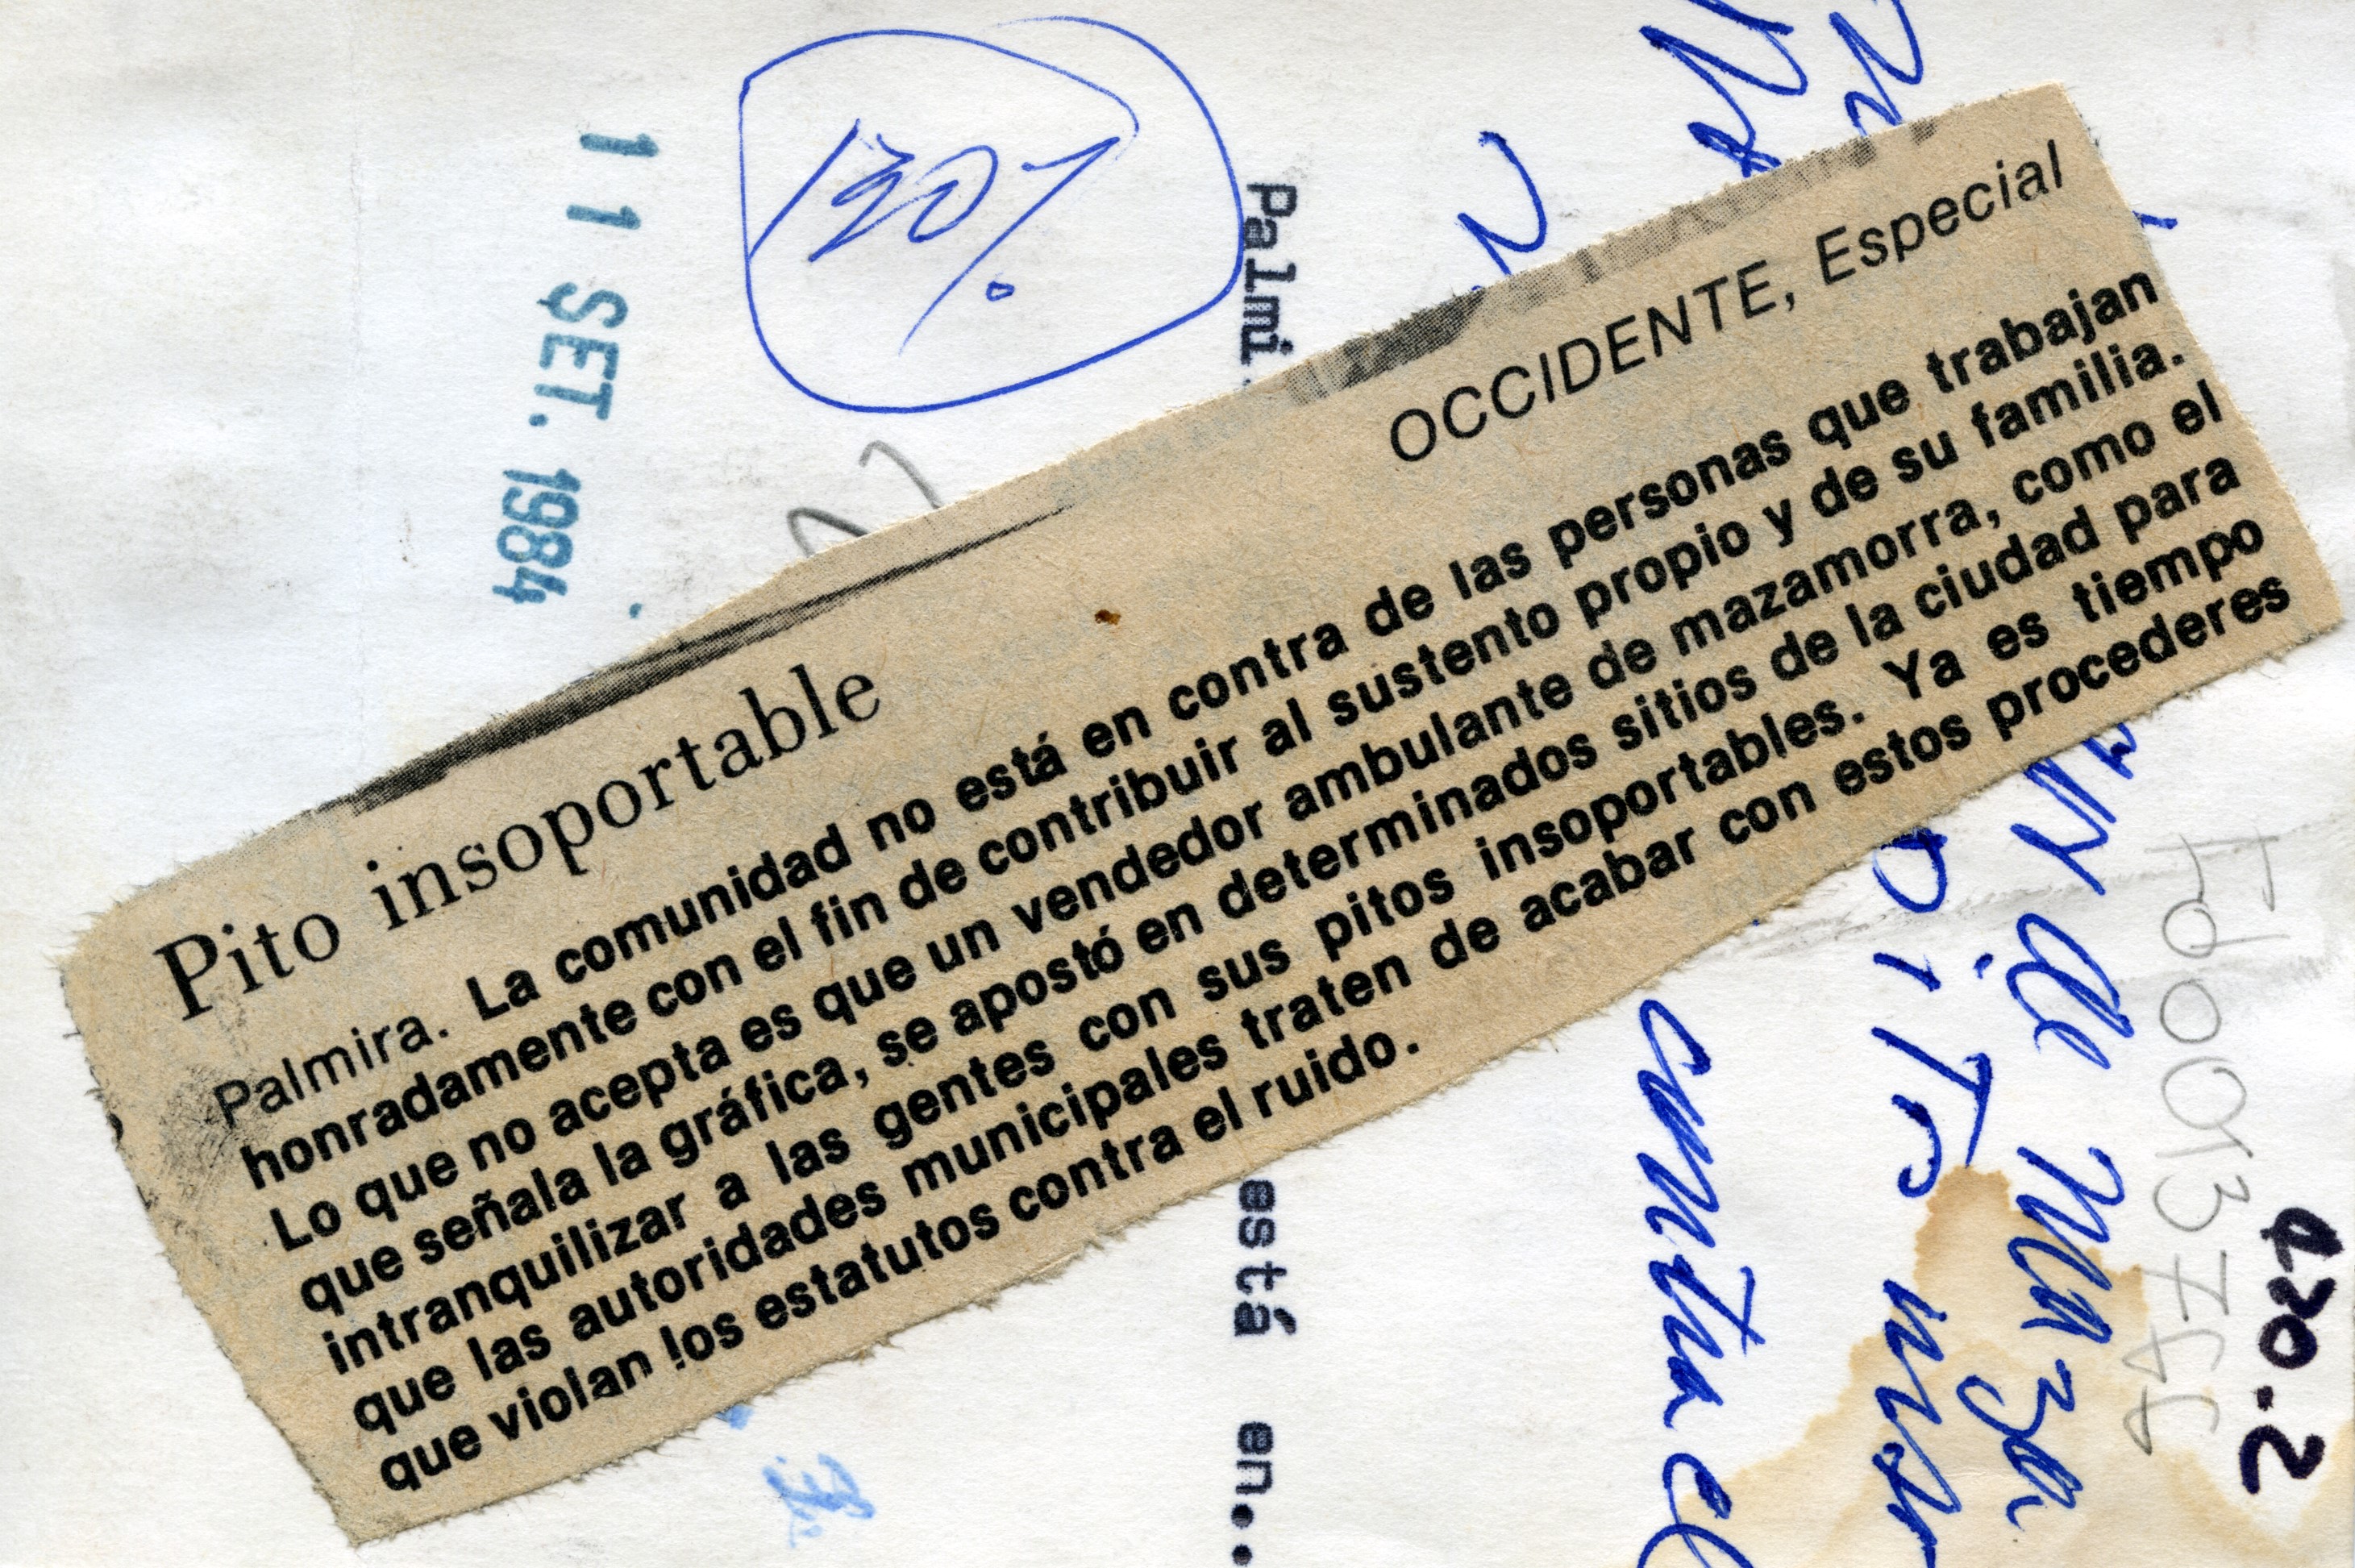 OCCIDENTE, Especial
Pito insoportable
Palmira. La comunidad no está en contra de las personas que trabajan
honradamente con el fin de contribuir al sustento propio y de su familia.
Lo que no acepta es que un vendedor ambulante de mazamorra, como el
que señala la gráfica, se apostó en determinados sitios de la ciudad para
intranquilizar a las gentes con sus pitos insoportables. Ya es tiempo
que las autoridades municipales traten de acabar con estos procederes
que violan los estatutos contra el ruido.
11 SET. 1984
Palmi
está en..
contra el
de Maza